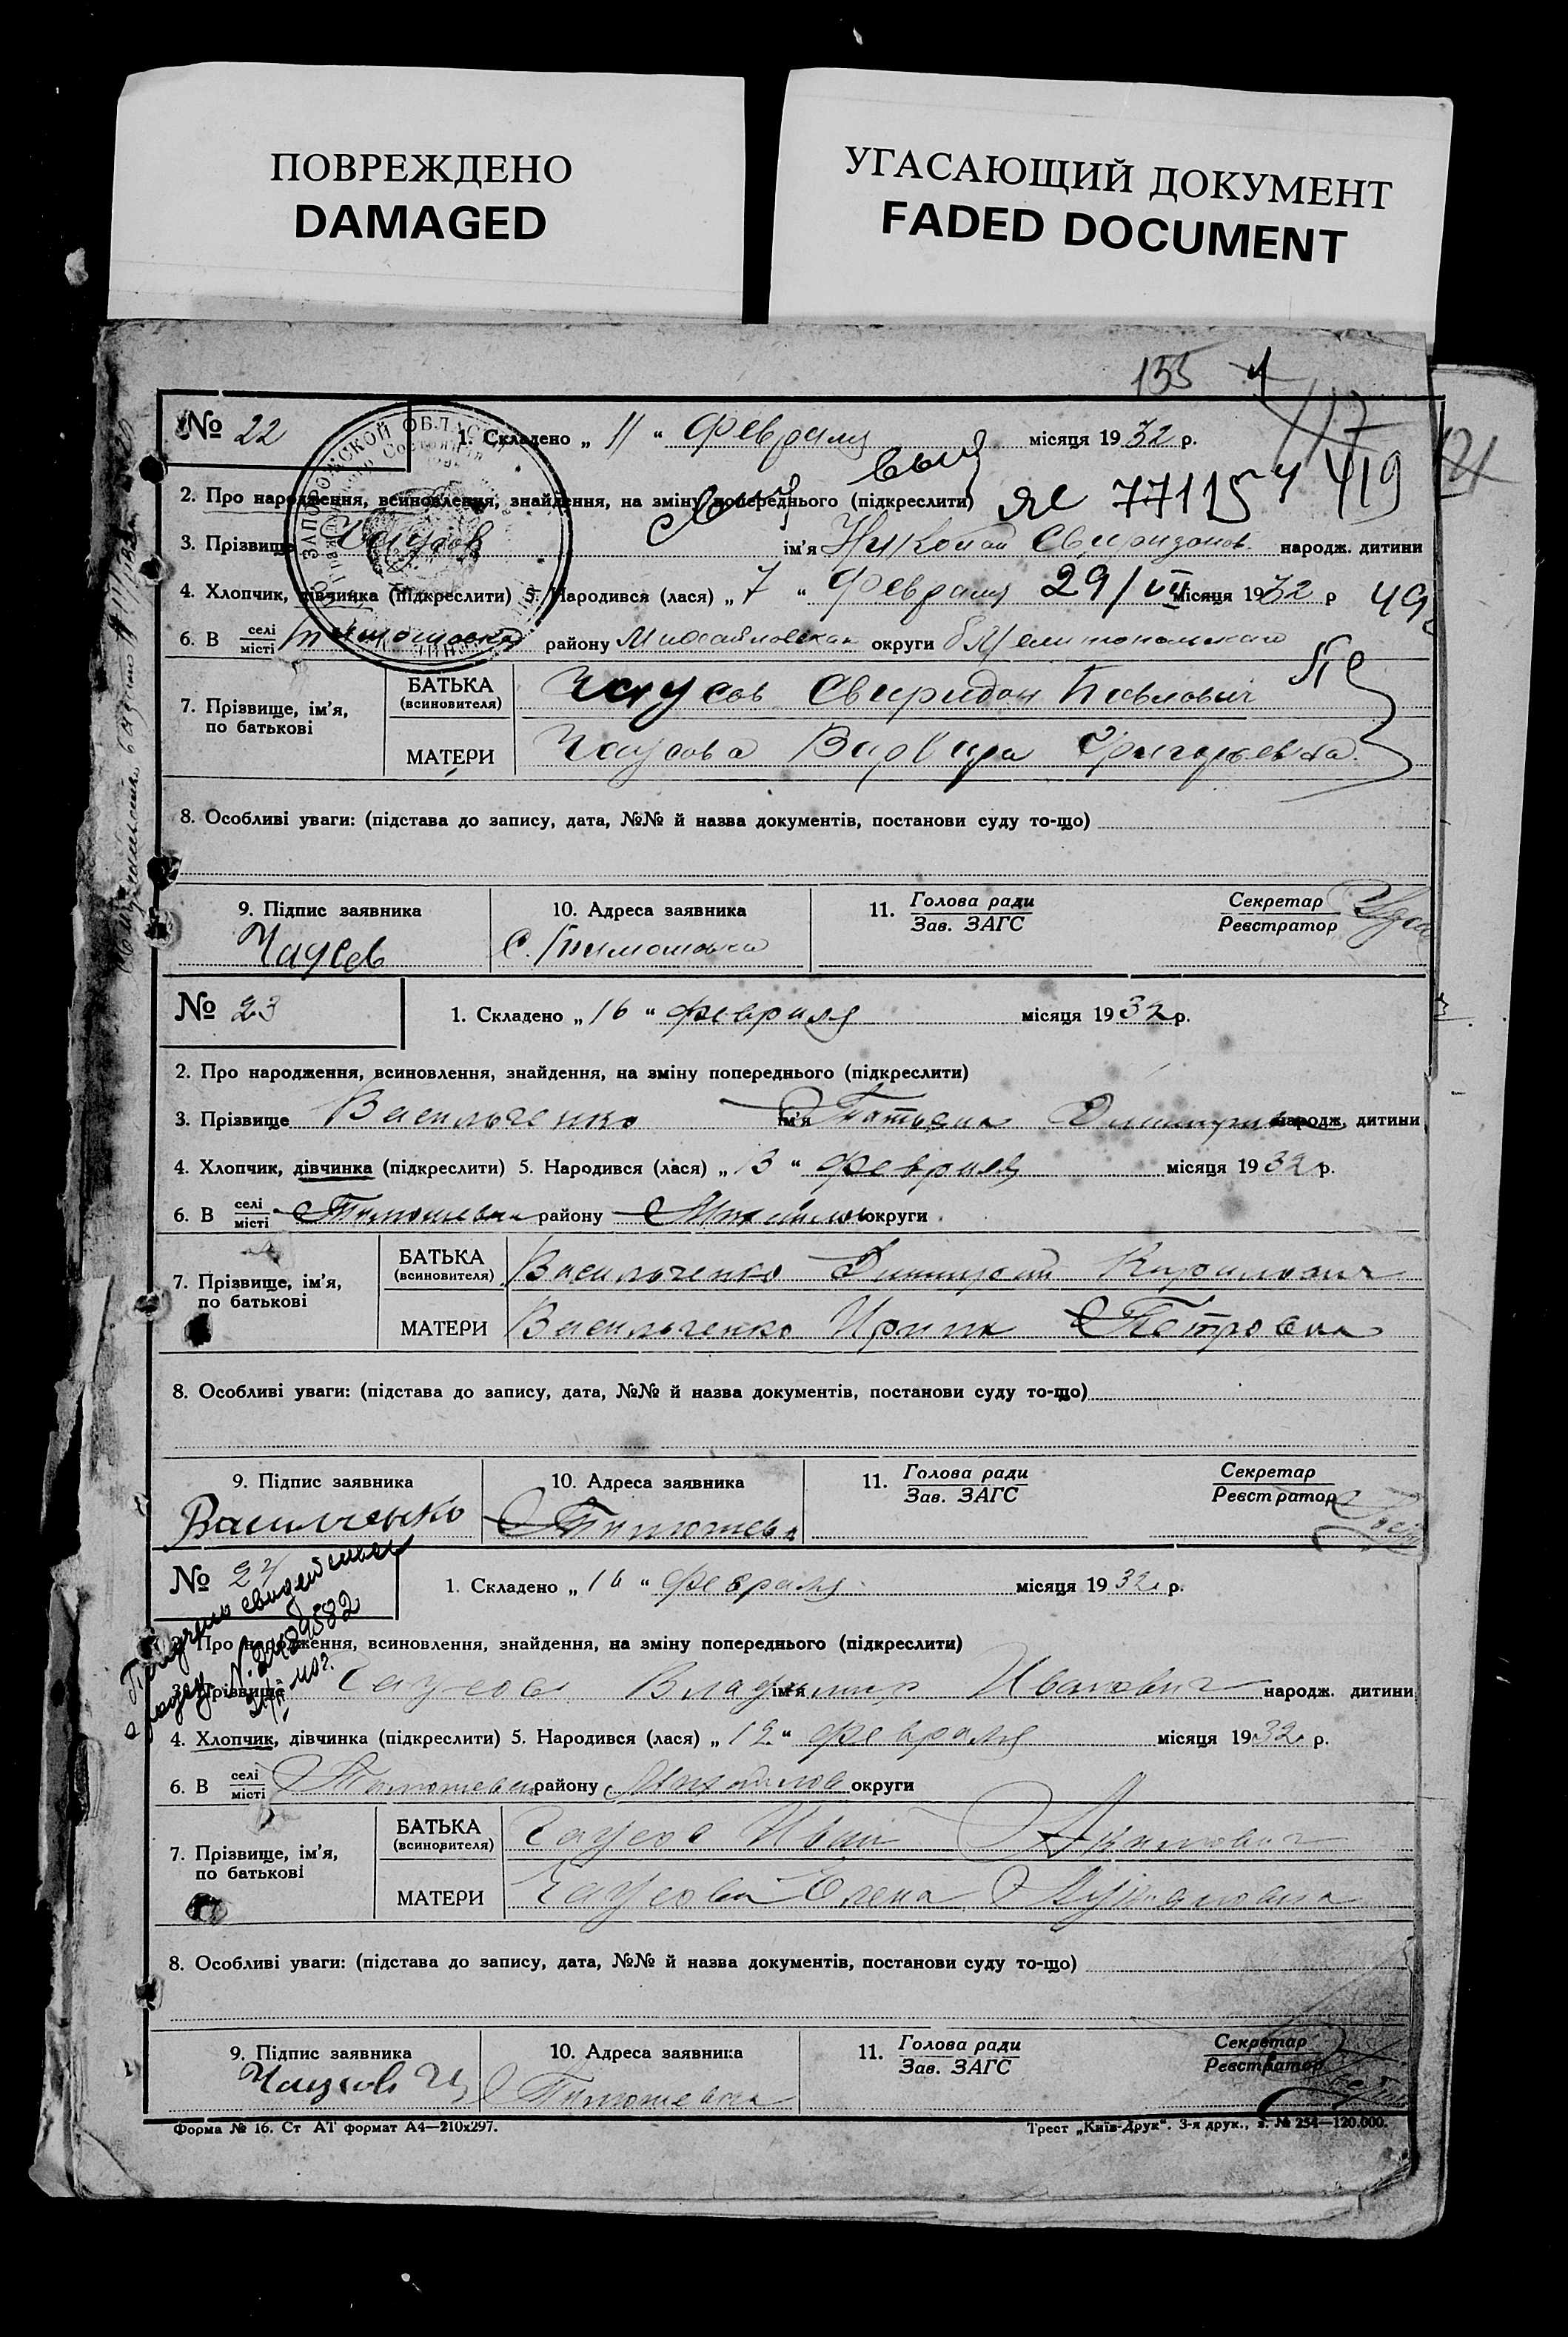 ПОВРЕЖДЕНО
DAMAGED
УГАСАЮЩИЙ ДОКУМЕНТ
FADED DOCUMENT
155
117
№ 22
1. Складено „ 11 “ Февраля місяця 1932 р.
2. Про народження, всиновлення, знайдення, на зміну попереднього (підкреслити)
419
3. Прізвище Чаусов ім’я Николай Свиридонов. народж. дитини
4. Хлопчик, дівчинка (підкреслити) 5. Народився (лася) „ 7 “ Февраля 29/VII місяця 1932 р 49
6. В селі/місті Тимошовка району Михайловскаи округи
7. Прізвище, ім’я, по батькові
БАТЬКА (всиновителя) Чаусов Свиридон Павлович
МАТЕРИ Чаусова Варвара Григорьевна.
8. Особливі уваги: (підстава до запису, дата, №№ й назва документів, постанови суду то-що)
9. Підпис заявника Чаусов
10. Адреса заявника С. Тимошовка
11. Голова ради/Зав. ЗАГС
Секретар/Реєстратор
№ 23
1. Складено „ 16 “ февраля місяця 1932 р.
2. Про народження, всиновлення, знайдення, на зміну попереднього (підкреслити)
3. Прізвище Васильченко ім’я Татьяна народж. дитини
4. Хлопчик, дівчинка (підкреслити) 5. Народився (лася) „ 13 “ февраля місяця 1932 р.
6. В селі/місті Тимошевка району Михайлов округи
7. Прізвище, ім’я, по батькові
БАТЬКА (всиновителя) Васильченко Димитрий Кирилович
МАТЕРИ Васильченко Ирина Петровна
8. Особливі уваги: (підстава до запису, дата, №№ й назва документів, постанови суду то-що)
9. Підпис заявника Васильченко
10. Адреса заявника Тимошевка
11. Голова ради/Зав. ЗАГС
Секретар/Реєстратор
№ 24
1. Складено „ 16 “ февраля місяця 1932 р.
2. Про народження, всиновлення, знайдення, на зміну попереднього (підкреслити)
3. Прізвище Чаусов ім’я Владимир Иванович народж. дитини
4. Хлопчик, дівчинка (підкреслити) 5. Народився (лася) „ 12 “ февраля місяця 1932 р.
6. В селі/місті Тимошевка району Михайлов округи
7. Прізвище, ім’я, по батькові
БАТЬКА (всиновителя) Чаусов Иван Акимович
МАТЕРИ Чаусова Елена
8. Особливі уваги: (підстава до запису, дата, №№ й назва документів, постанови суду то-що)
9. Підпис заявника Чаусов И
10. Адреса заявника Тимошевка
11. Голова ради/Зав. ЗАГС
Секретар/Реєстратор
Форма № 16. Ст АТ формат А4—210х297.
Трест „Київ-Друк“. 3-я друк., з. № 254—120.000.